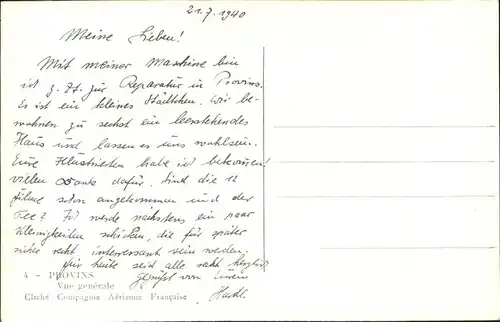 21.7.1940
Meine Lieben!
Mit meiner Maschine bin
ich z. Zt. zur Reparatur in Provins.
Es ist ein kleines Städtchen. Wir be-
wohnen zu sechst ein leerstehendes
Haus und lassen es uns wohlsein.
Eure Illustrierten habe ich bekommen!
vielen Dank dafür. Sind die 12
Filme schon angekommen und der
Tee? Ich werde nächstens ein paar
Kleinigkeiten schicken, die für später
sicher recht interessant sein werden.
Für heute seid alle recht herzlich
gegrüßt von Eurem
4 - PROVINS
Vue générale
Cliché Compagnie Aérienne Française